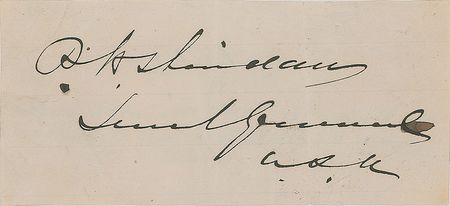 P. H. Sheridan
Lieut General
U.S.A